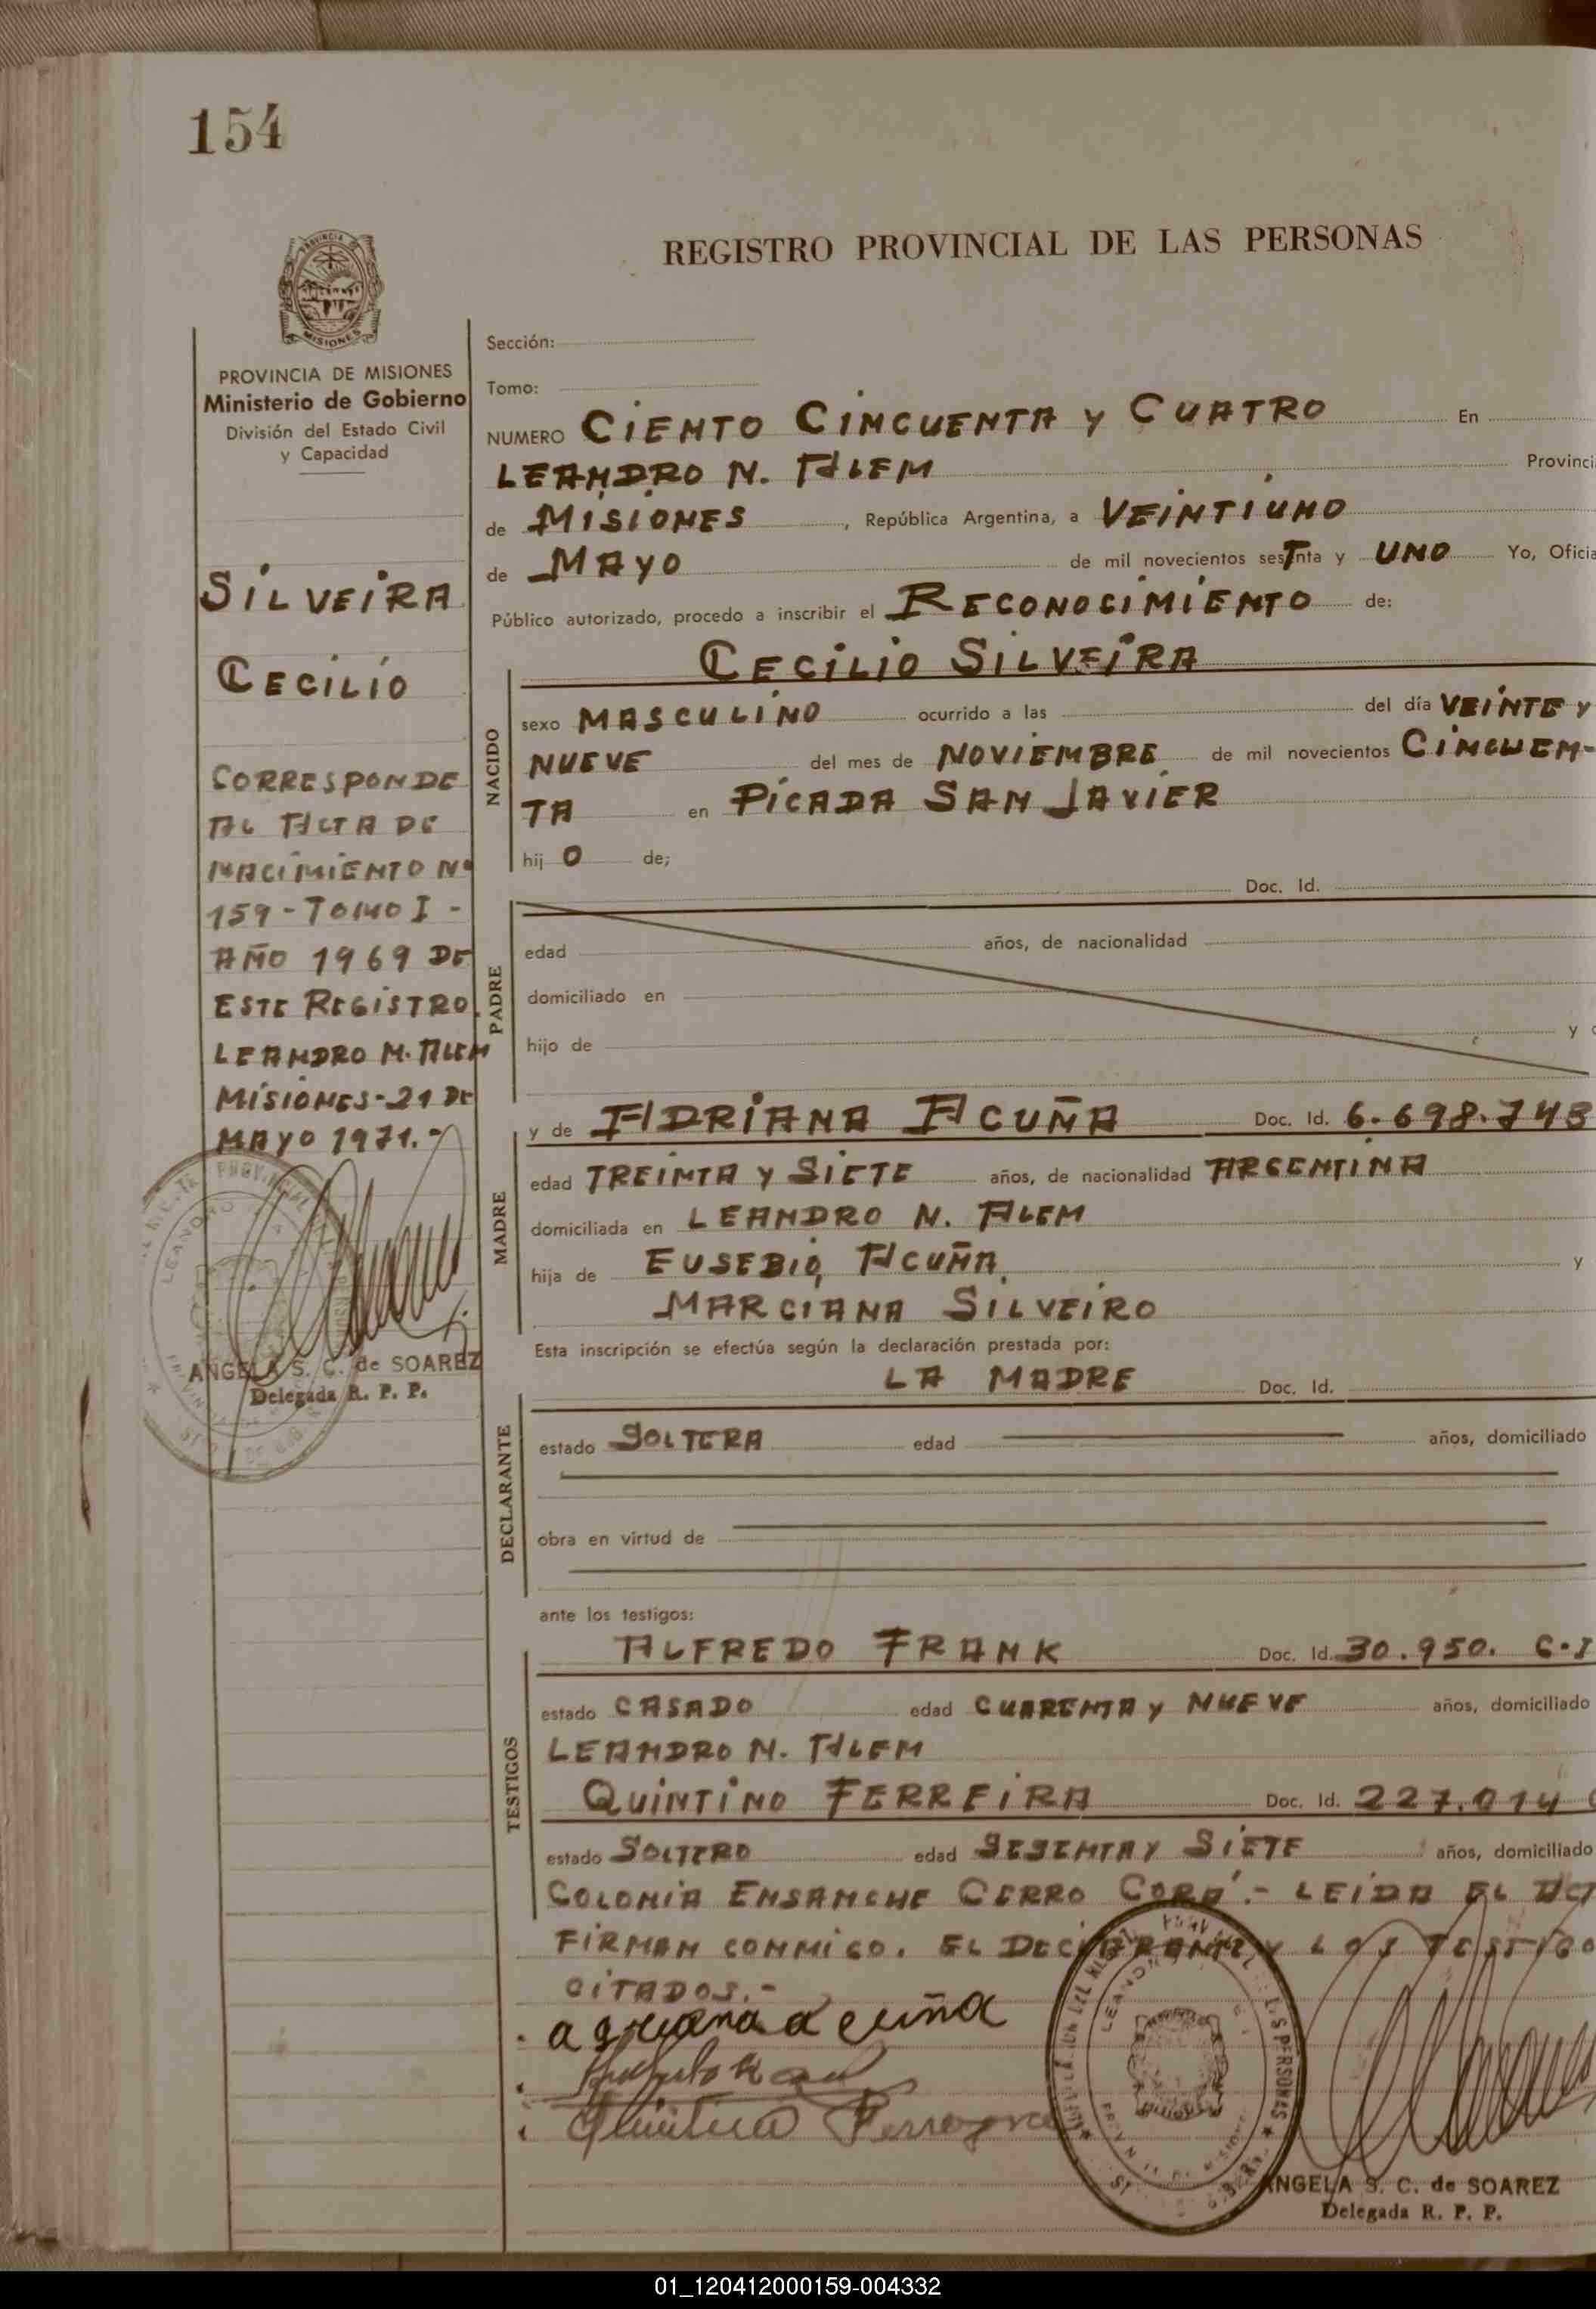 154
REGISTRO PROVINCIAL DE LAS PERSONAS
PROVINCIA DE MISIONES
Ministerio de Gobierno
División del Estado Civil
y Capacidad
SILVEIRA
CECILIO
CORRESPONDE
AL ACTA DE
NACIMIENTO Nº
159 - TOMO I -
AÑO 1969 DE
ESTE REGISTRO.
LEANDRO N. ALEM
MISIONES - 21 DE
MAYO 1971.-
ANGELA S. C. de SOAREZ
Delegada R. P. P.
Sección:
Tomo:
NUMERO CIENTO CINCUENTA Y CUATRO En
LEANDRO N. ALEM Provinci
de MISIONES, República Argentina, a VEINTIUNO
de MAYO de mil novecientos sesTnta y UNO Yo, Oficia
Público autorizado, procedo a inscribir el RECONOCIMIENTO de:
CECILIO SILVEIRA
NACIDO
sexo MASCULINO ocurrido a las del día VEINTE Y
NUEVE del mes de NOVIEMBRE de mil novecientos CINCUEN-
TA en PICADA SAN JAVIER
hij O de;
Doc. Id.
PADRE
edad años, de nacionalidad
domiciliado en
hijo de y
y de ADRIANA ACUÑA Doc. Id. 6.698.743
MADRE
edad TREINTA Y SIETE años, de nacionalidad ARGENTINA
domiciliada en LEANDRO N. ALEM
hija de EUSEBIO ACUÑA y
MARCIANA SILVEIRO
Esta inscripción se efectúa según la declaración prestada por:
LA MADRE Doc. Id.
DECLARANTE
estado SOLTERA edad años, domiciliado
obra en virtud de
ante los testigos:
ALFREDO FRANK Doc. Id. 30.950. C.I
TESTIGOS
estado CASADO edad CUARENTA Y NUEVE años, domiciliado
LEANDRO N. ALEM
QUINTINO FERREIRA Doc. Id. 227.014
estado SOLTERO edad SESENTA Y SIETE años, domiciliado
COLONIA ENSANCHE CERRO CORÁ.- LEIDA EL AC
FIRMAN CONMIGO. EL DECLARANTE Y LOS TESTIGO
CITADOS.-
adriana acuña
ANGELA S. C. de SOAREZ
Delegada R. P. P.
01_120412000159-004332